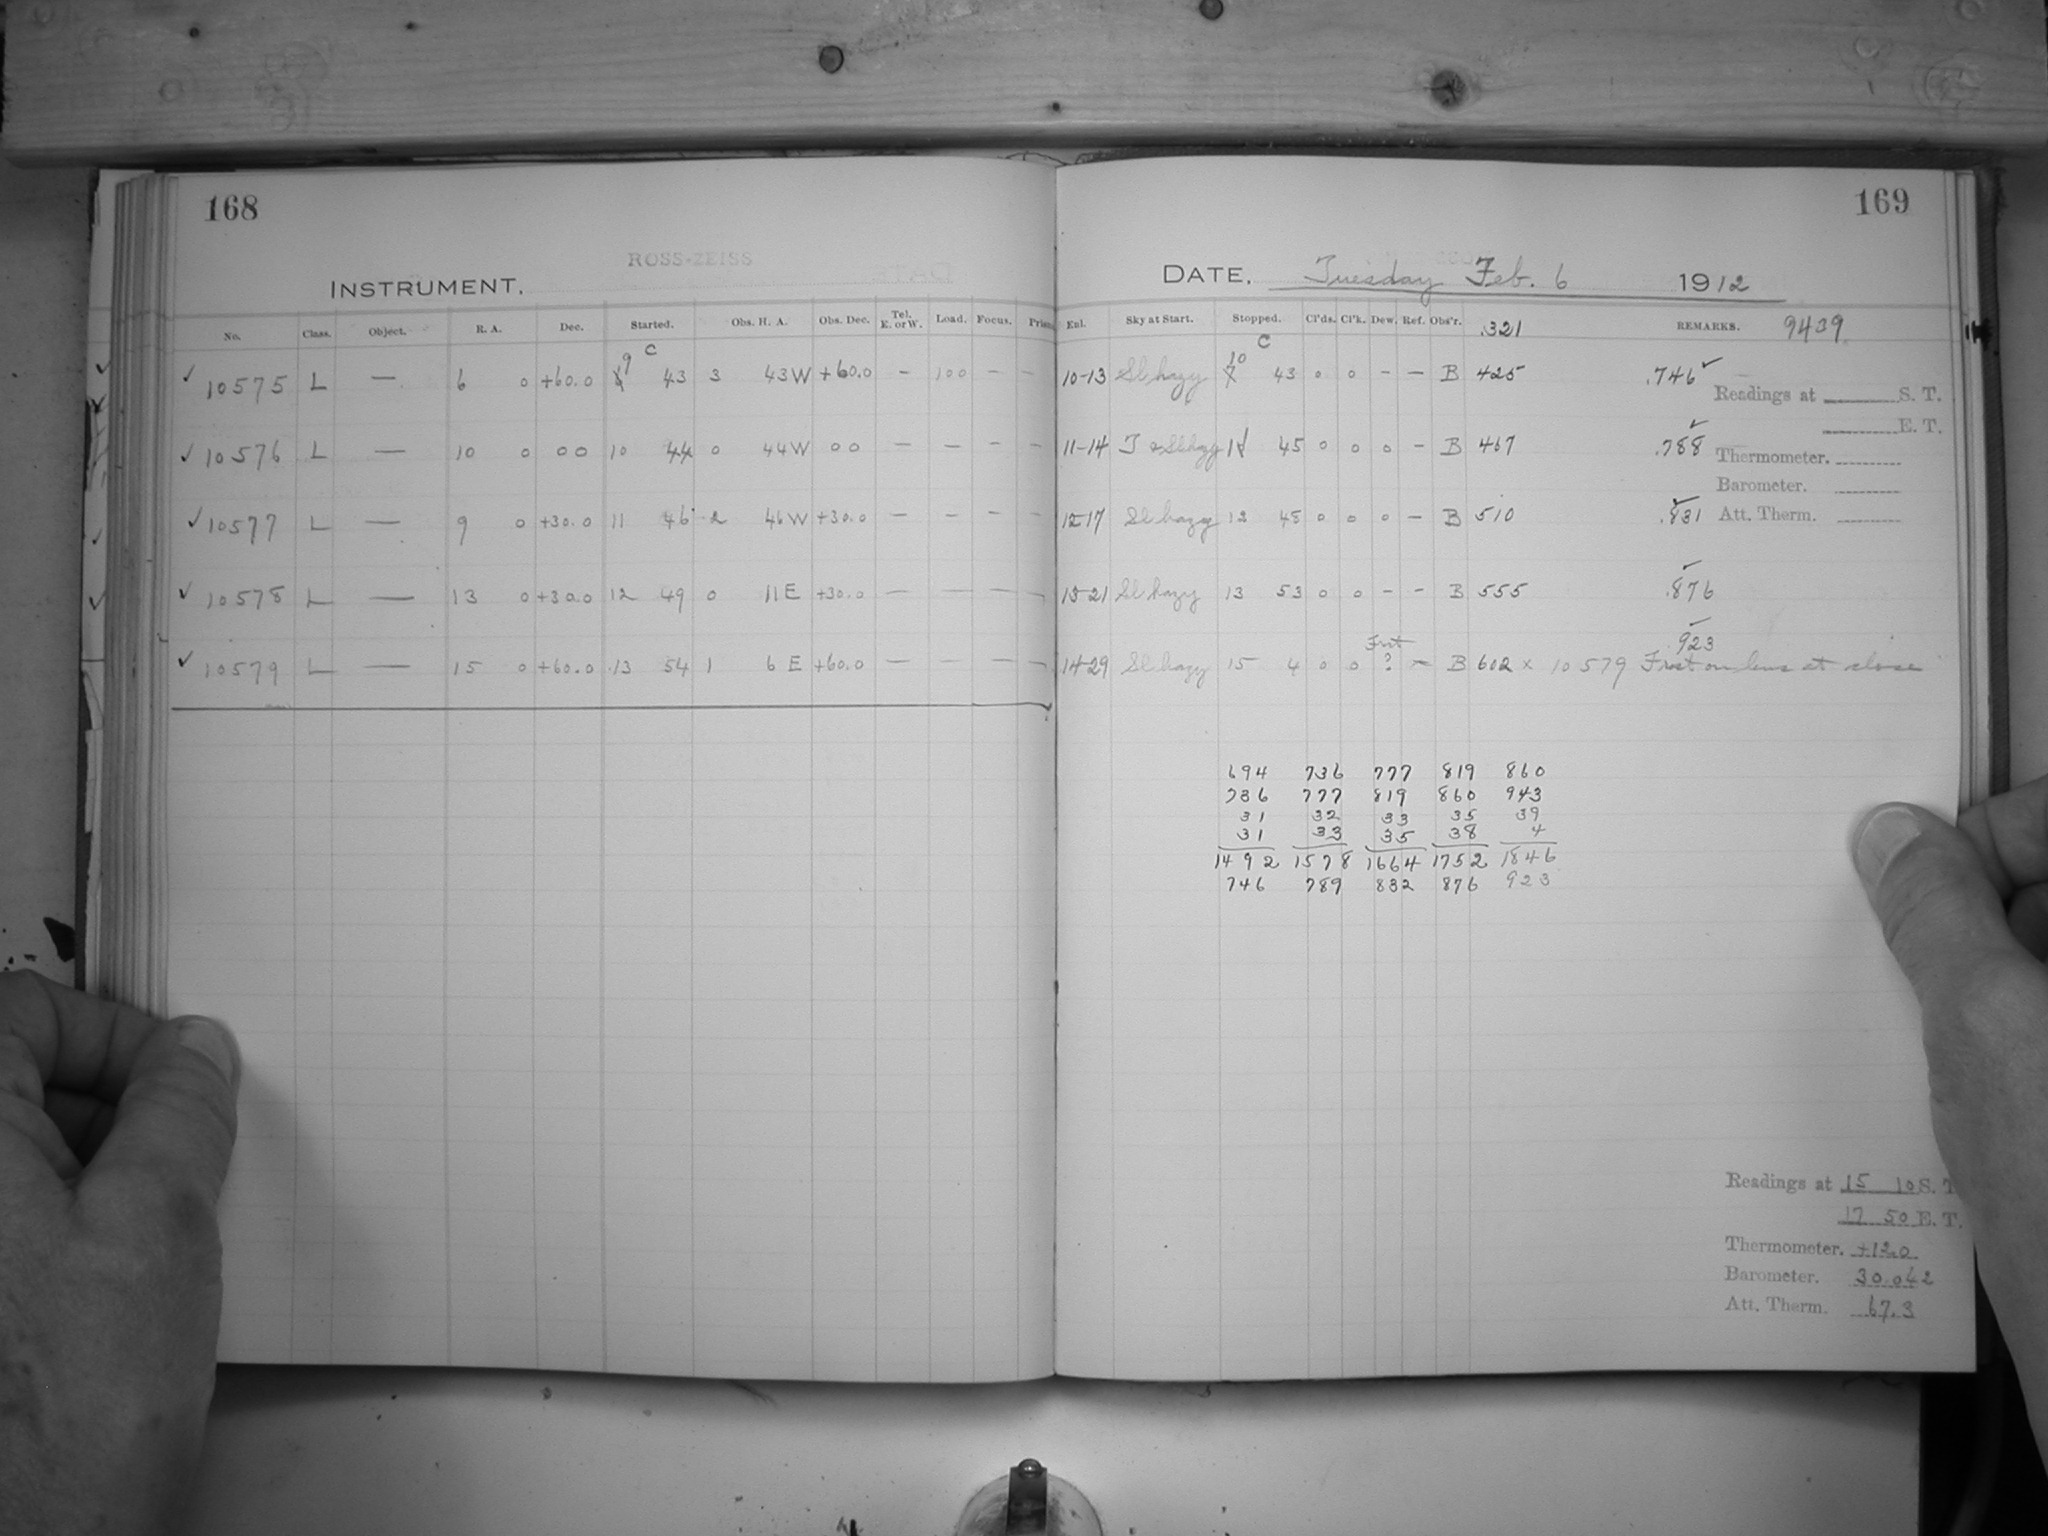 168
ROSS-ZEISS
INSTRUMENT.
No. Class. Object. R. A. Dec. Started. Obs. H. A. Obs. Dec. Tel. E. or W. Load. Focus.
C
✓ 10575 L — 6 0 +60.0 9 43 3 43W +60.0 — 100 — —
✓ 10576 L — 10 0 0 0 10 44 0 44W 0 0 — — — —
✓ 10577 L — 9 0 +30.0 11 46 2 46W +30.0 — — — —
✓ 10578 L — 13 0 +30.0 12 49 0 11E +30.0 — — — —
✓ 10579 L — 15 0 +60.0 13 54 1 6E +60.0 — — — —
169
DATE. Tuesday Feb. 6 1912
Enl. Sky at Start. Stopped. Cl'ds. Cl'k. Dew. Ref. Obs'r. .321 REMARKS. 9439
C
10-13 Sl hazy 10 43 0 0 — — B 425 .746 ✓
Readings at S. T.
E. T.
11-14 Sl hazy 11 45 0 0 0 — B 467 .788 ✓
Thermometer.
Barometer.
12-17 Sl hazy 12 48 0 0 0 — B 510 .831 ✓
Att. Therm.
13-21 Sl hazy 13 53 0 0 — — B 555 .876 ✓
Frost 923 ✓
14-29 Sl hazy 15 4 0 0 ? — B 602 × 10579 Frost on lens at close
694 736 777 819 860
736 777 819 860 943
31 32 33 35 39
31 33 35 38 4
1492 1578 1664 1752 1846
746 789 832 876 923
Readings at 15 10 S. T.
17 50 E. T.
Thermometer. +12.0
Barometer. 30.042
Att. Therm. 67.3